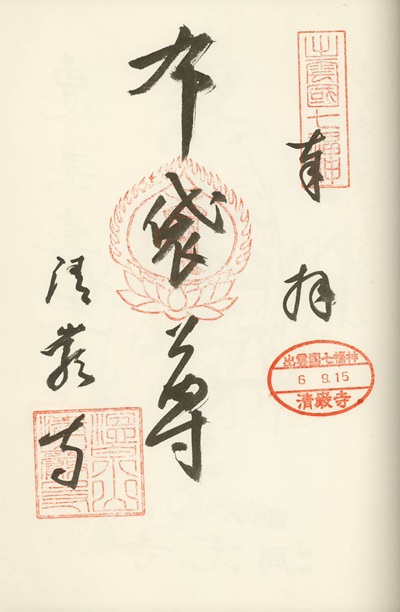 出雲國七福神
奉拝
出雲国七福神
6 9.15
清巌寺
布袋尊
清巌寺